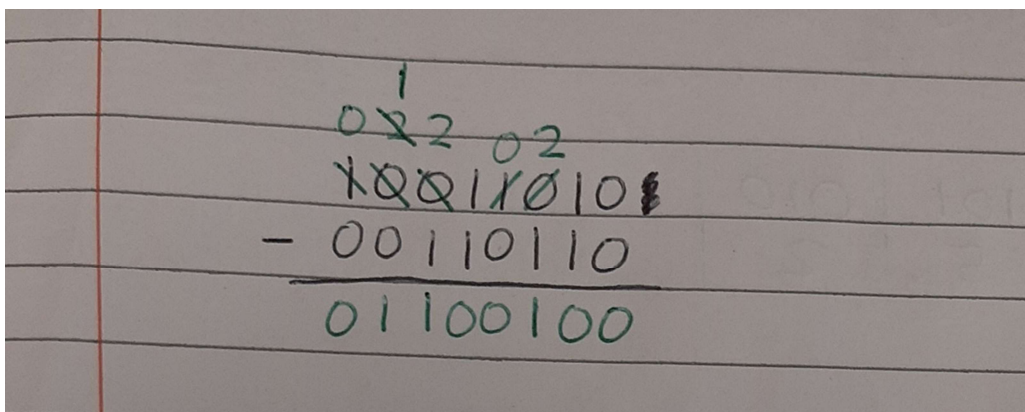 1
022 02
10011010
- 00110110
01100100